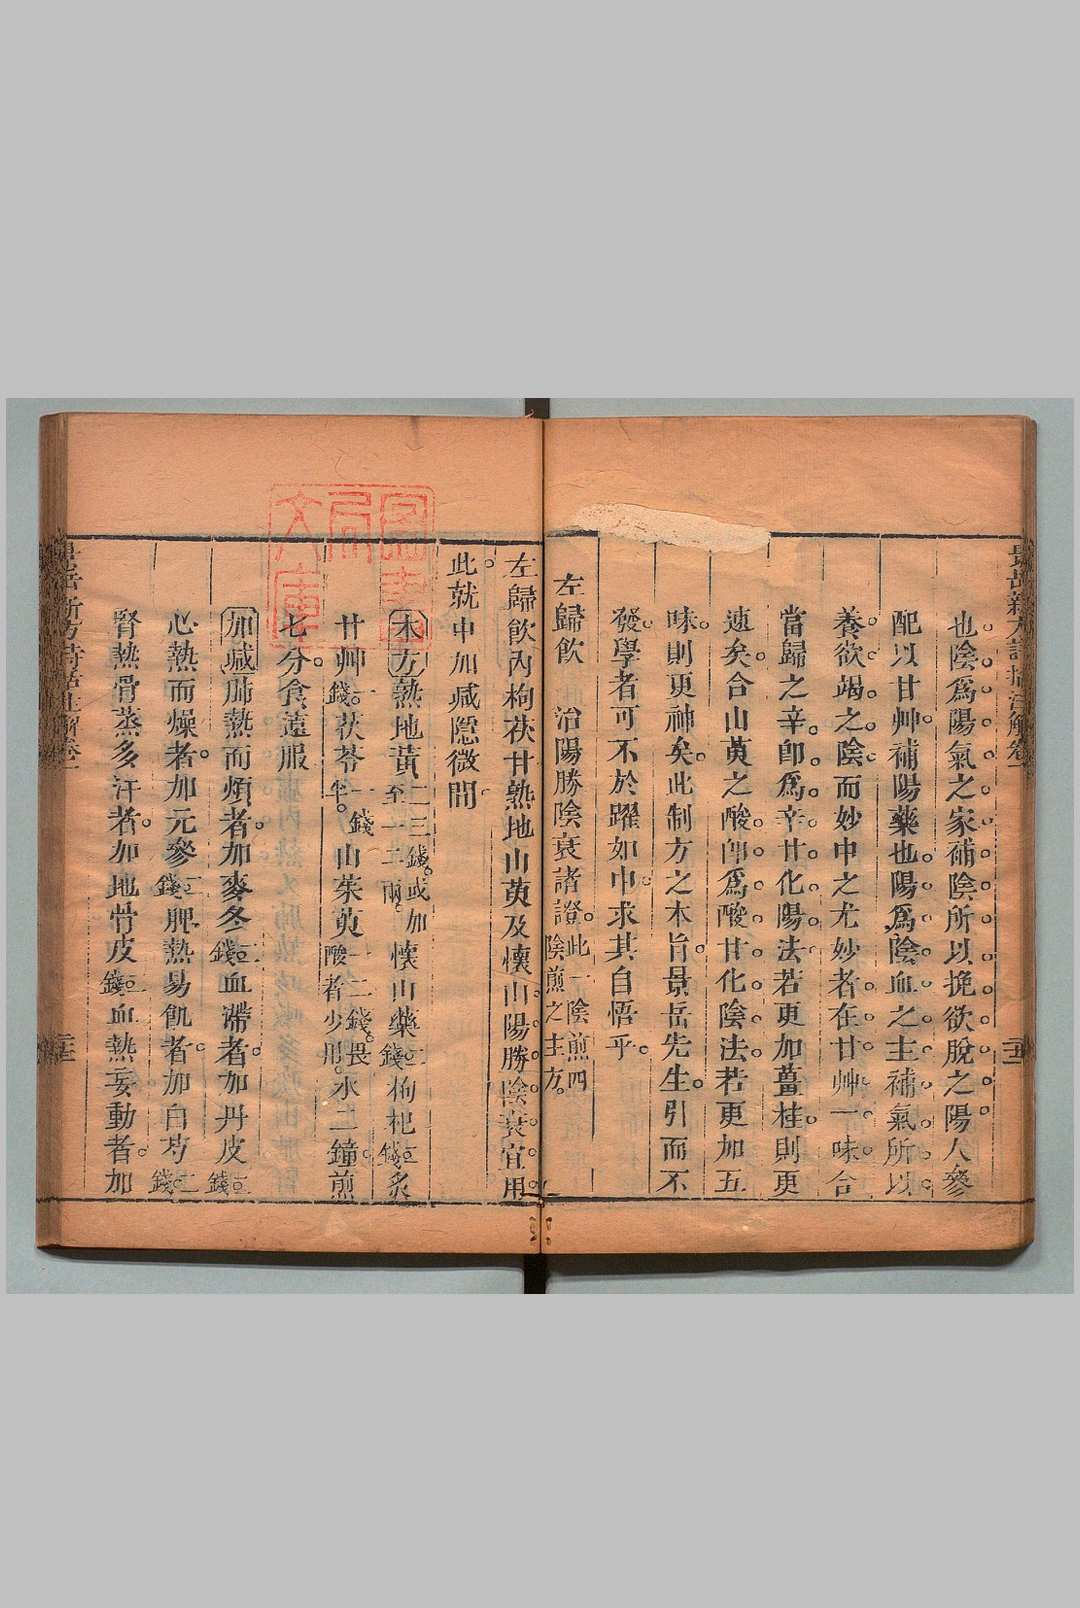 也陰爲陽氣之家補陰所以挽欲脫之陽人參
配以甘艸補陽藥也陽爲陰血之主補氣所以
養欲竭之陰而妙中之尤妙者在甘艸一味合
當歸之辛卽爲辛甘化陽法若更加薑桂則更
速矣合山萸之酸卽爲酸甘化陰法若更加五
味則更神矣此制方之本旨景岳先生引而不
發學者可不於躍如中求其自悟乎
左歸飲 治陽勝陰衰諸證此一陰煎四陰煎之主方
左歸飲內枸茯甘熟地山萸及懷山陽勝陰衰宜用
此就中加減隱微間
本方熟地黃二三錢或加至一二兩懷山藥二錢枸杞二錢炙
甘艸一錢茯苓一錢半山茱萸一二錢畏酸者少用水二鐘煎
七分食遠服
加減肺熱而煩者加麥冬二錢血滯者加丹皮二錢
心熱而燥者加元參二錢脾熱易飢者加白芍二錢
腎熱骨蒸多汗者加地骨皮二錢血熱妄動者加
圖書局文庫